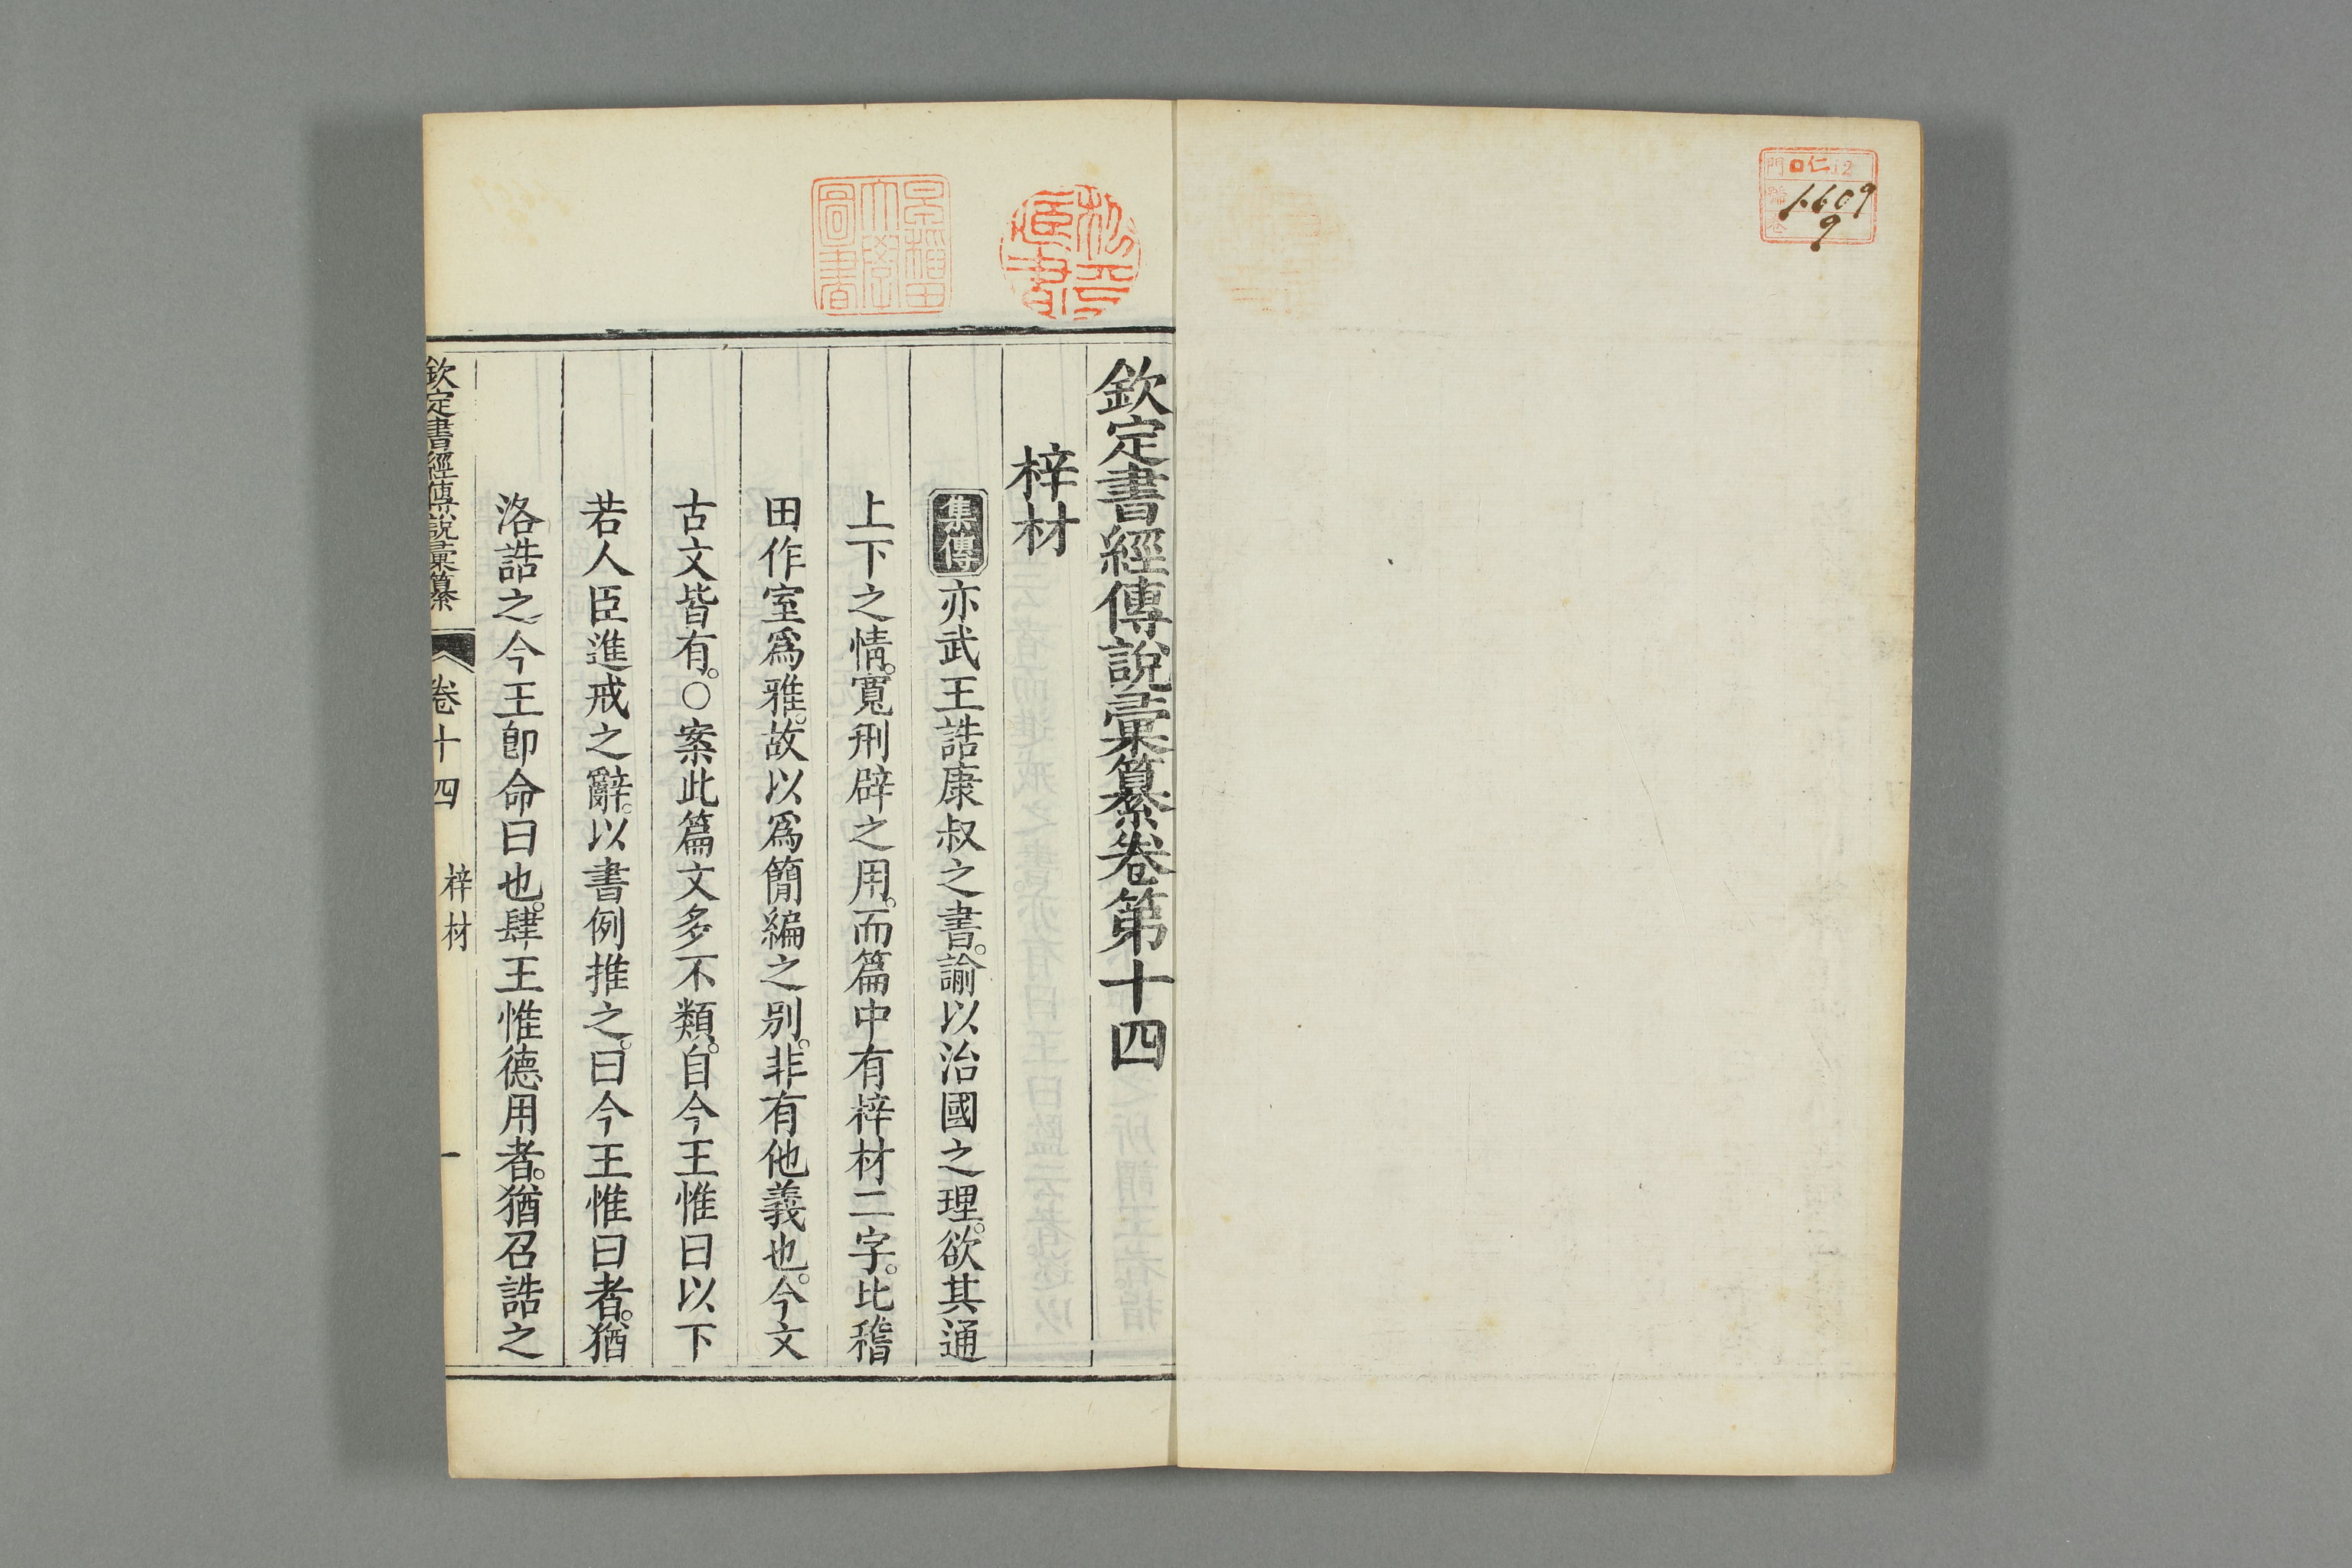 門 口仁 12
號 1609
卷 9
欽定書經傳說彙纂卷第十四
梓材
集傳亦武王誥康叔之書。諭以治國之理。欲其通
上下之情。寬刑辟之用。而篇中有梓材二字。比稽
田作室爲雅。故以爲簡編之別。非有他義也。今文
古文皆有。○案此篇文多不類。自今王惟曰以下
若人臣進戒之辭。以書例推之。曰今王惟曰者。猶
洛誥之今王卽命曰也。肆王惟德用者。猶召誥之
欽定書經傳說彙纂 卷十四 梓材 一
早稻田大學圖書